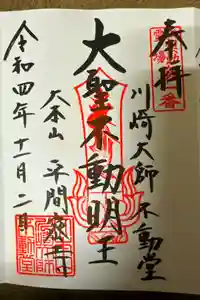 奉拝
川崎大師 不動堂
大聖不動明王
大本山 平間寺
令和四年十一月二日